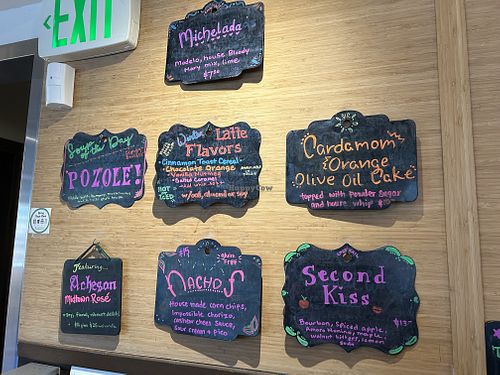 EXIT
Michelada
Modelo, house Bloody
Mary mix, lime
$7.50
Soup of the Day
POZOLE!
Winter Latte
Flavors
Cinnamon Toast Cereal
Chocolate Orange
Vanilla Nutmeg
Salted Caramel
HOT
ICED
w/oat, almond or soy
Cardamom
& Orange
Olive Oil Cake
topped with powder sugar
and house whip
Featuring...
Acheson
Midtown Rosé
$19
gluten
Free
NACHOS
House made corn chips,
Impossible chorizo,
cashew cheez sauce,
sour cream + pico
Second
Kiss
Bourbon, spiced apple,
Amaro Nonino, maple,
walnut bitters, lemon
soda